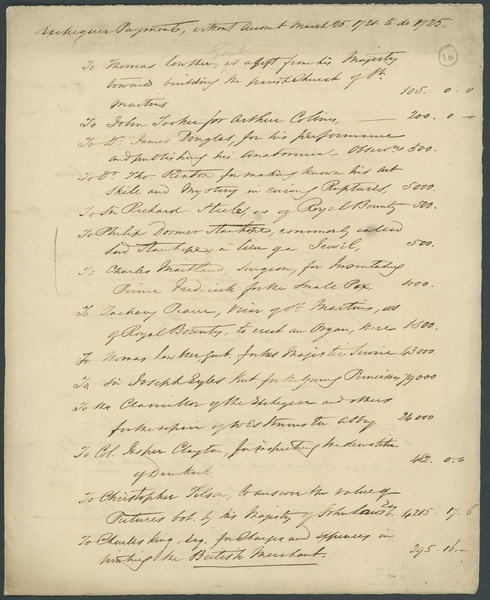 Exchequer Payments, without Account March 25 1721. to do 1725.
10
To Thomas Lowther, as a gift from his Majesty
toward building the parish Church of St.
Martins 105. 0. 0
To John Tooker for Arthur Colins, — 200. 0 —
To Dr. James Douglas, for his performance
and publishing his Anatomical Observns 500.
To Dr. Tho. Renton for making known his art
Skill and Mystery in curing Ruptures, 5000.
To Sir Richard Steele, as of Royal Bounty 500.
To Philip Dormer Stanhope, commonly called
Lord Stanhope, in lieu of a Jewel, 500.
To Charles Maitland, Surgeon, for Inoculating
Prince Frederick for the Small Pox 1000.
To Zachary Pearce, Vicar of St. Martins, as
of Royal Bounty, to erect an Organ, here 1500.
To Thomas Gent. for his Majesties Service 43000.
To Sir Joseph Eyles Knt for the Young Princesses 79000
To the Chancellor of the Exchequer and others
for the repair of Westminster Abby 24000
To Col. Jasper Clayton, for inspecting the demolition
of Dunkirk 482. 0. 0
To Christopher Tilson, to answer the value of
Pictures bot. by his Majesty of John Law 4215. 17. 6
To Charles King, Esq. for Charges and expences in
printing the British Merchant. 395. 16. —